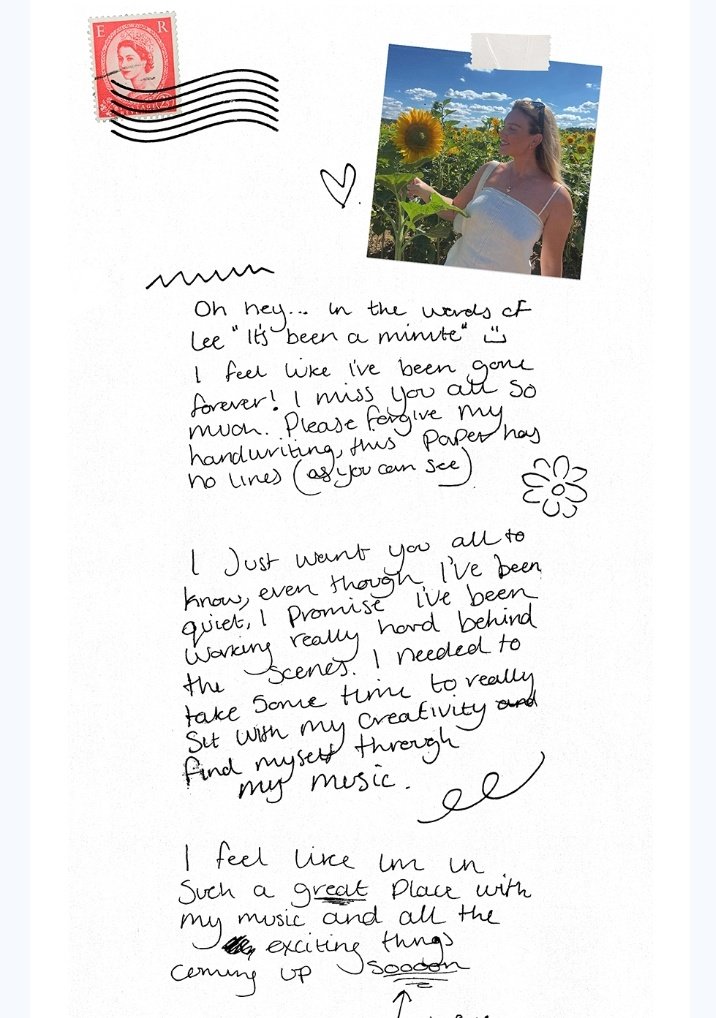 E R
Oh hey... in the words of
Lee "It's been a minute"
I feel like I've been gone
forever! I miss you all so
much. Please forgive my
handwriting, this Paper has
no lines (as you can see)
I Just want you all to
know, even though I've been
quiet, I Promise I've been
working really hard behind
the scenes. I needed to
take some time to really
sit with my creativity and
find myself through
my music.
I feel like Im in
Such a great Place with
my music and all the
exciting things
coming up sooooon